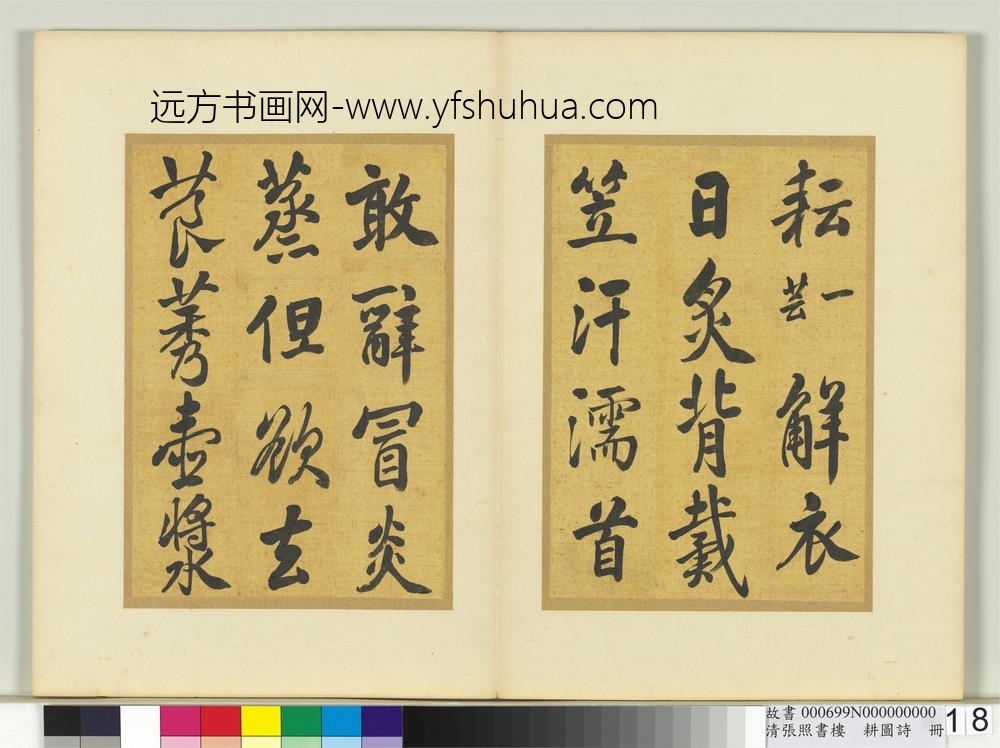 远方书画网-www.yfshuhua.com
耘一芸解衣
日炙背戴
笠汗濡首
敢辭冒炎
蒸但欲去
莨莠壺漿
故書 000699N000000000 18
清張照書樓 耕圖詩 冊